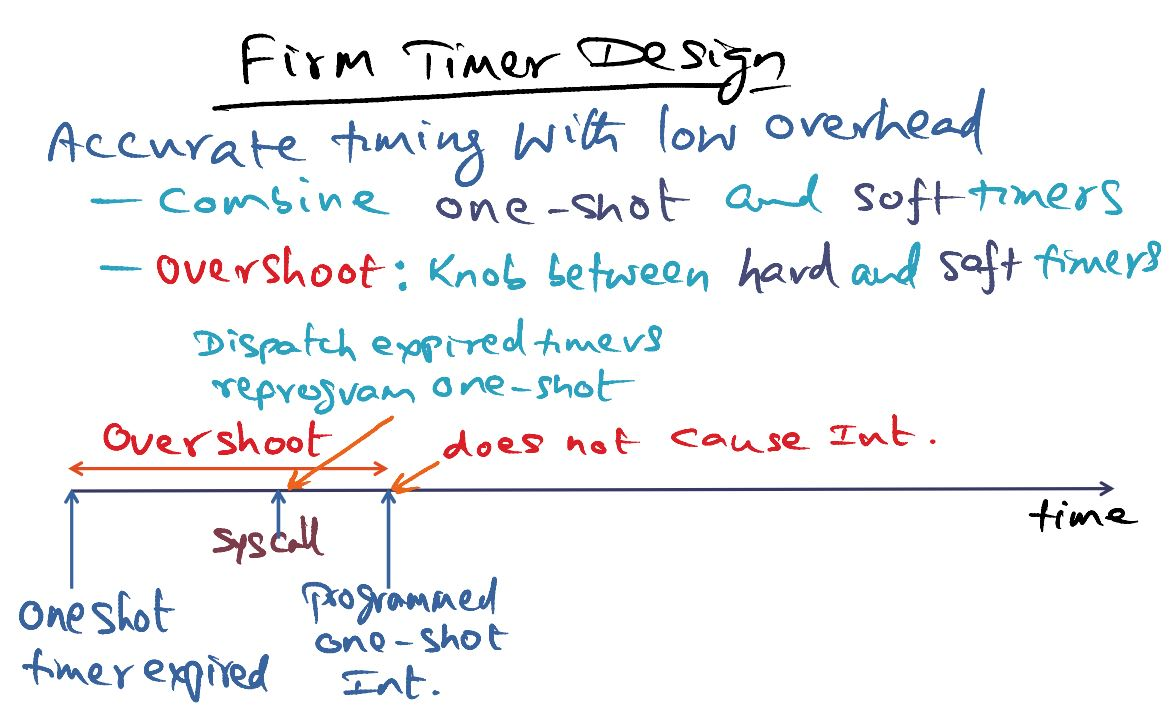 Firm Timer Design
Accurate timing with low overhead
— Combine one-shot and soft timers
— Overshoot: Knob between hard and soft timers
Dispatch expired timers
reprogram one-shot
Overshoot
does not cause Int.
time
Syscall
One shot
timer expired
Programmed
one-shot
Int.